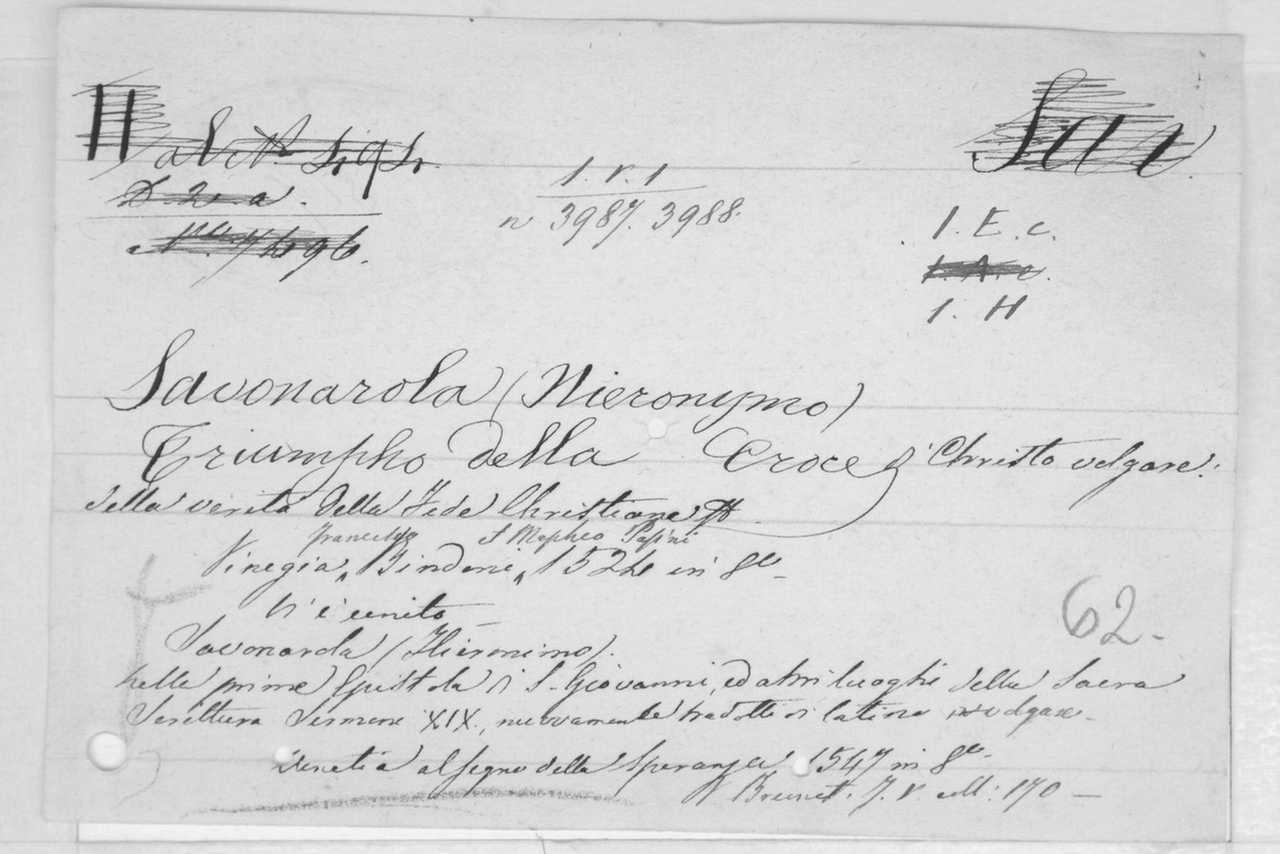 Sav
1. V. 1
n 3987. 3988.
1. E. c.
1. A. c.
1. H
Savonarola (Hieronymo)
Triumpho della Croce di Christo volgare.
della verità della Fede Christiana
Francesco & Mapheo Pasini
Vinegia, Bindoni, 1524 in 8°
Vi è unito
Savonarola (Hieronimo).
Nelle prime Epistola di S. Giovanni, ed altri luoghi della Sacra
Scrittura Sermoni XIX, nuovamente tradotti di latino in volgare
Venetia al segno della Speranza 1547 in 8°
V. Brunet. T. V. coll: 170 —
62-